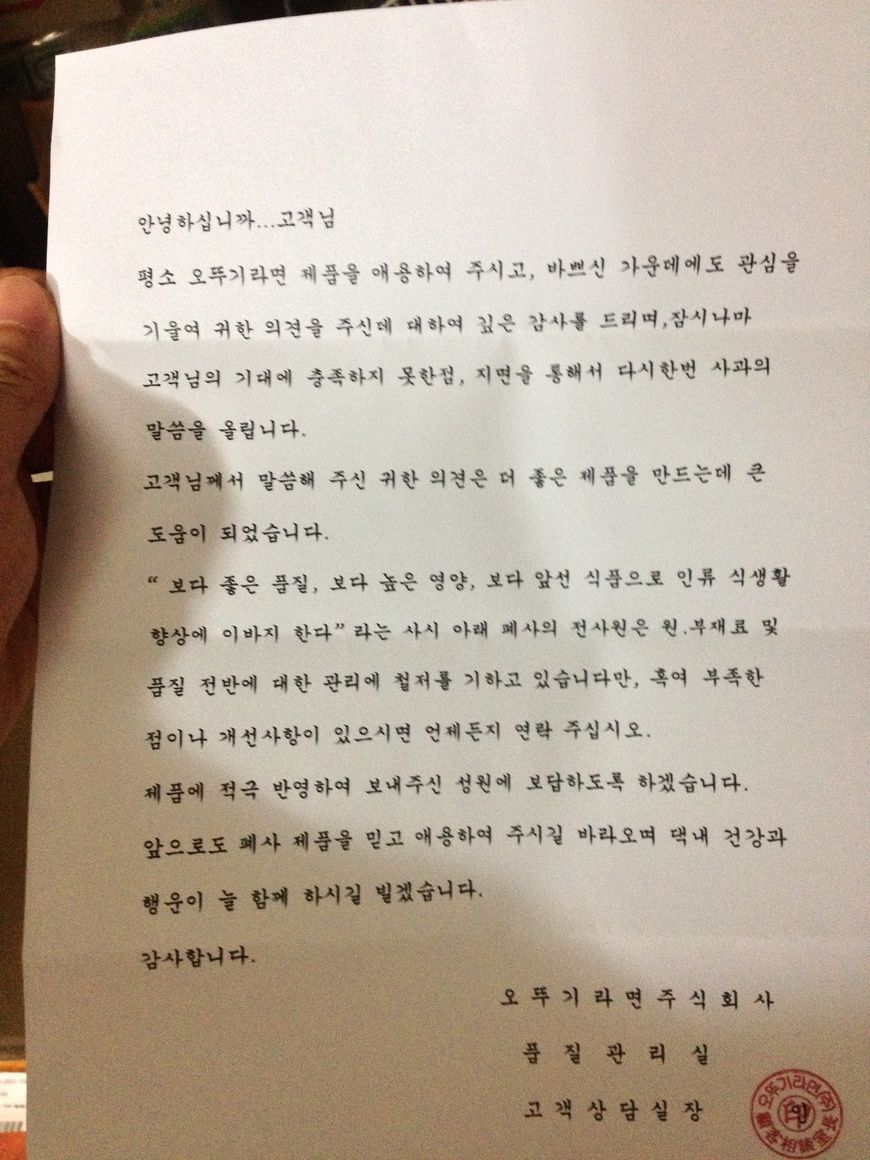 안녕하십니까...고객님
평소 오뚜기라면 제품을 애용하여 주시고, 바쁘신 가운데에도 관심을
기울여 귀한 의견을 주신데 대하여 깊은 감사를 드리며,잠시나마
고객님의 기대에 충족하지 못한점, 지면을 통해서 다시한번 사과의
말씀을 올립니다.
고객님께서 말씀해 주신 귀한 의견은 더 좋은 제품을 만드는데 큰
도움이 되었습니다.
“ 보다 좋은 품질, 보다 높은 영양, 보다 앞선 식품으로 인류 식생활
향상에 이바지 한다”라는 사시 아래 폐사의 전사원은 원.부재료 및
품질 전반에 대한 관리에 철저를 기하고 있습니다만, 혹여 부족한
점이나 개선사항이 있으시면 언제든지 연락 주십시오.
제품에 적극 반영하여 보내주신 성원에 보답하도록 하겠습니다.
앞으로도 폐사 제품을 믿고 애용하여 주시길 바라오며 댁내 건강과
행운이 늘 함께 하시길 빌겠습니다.
감사합니다.
오뚜기라면주식회사
품질관리실
고객상담실장
오뚜기라면(주)
顧客相談室長
인